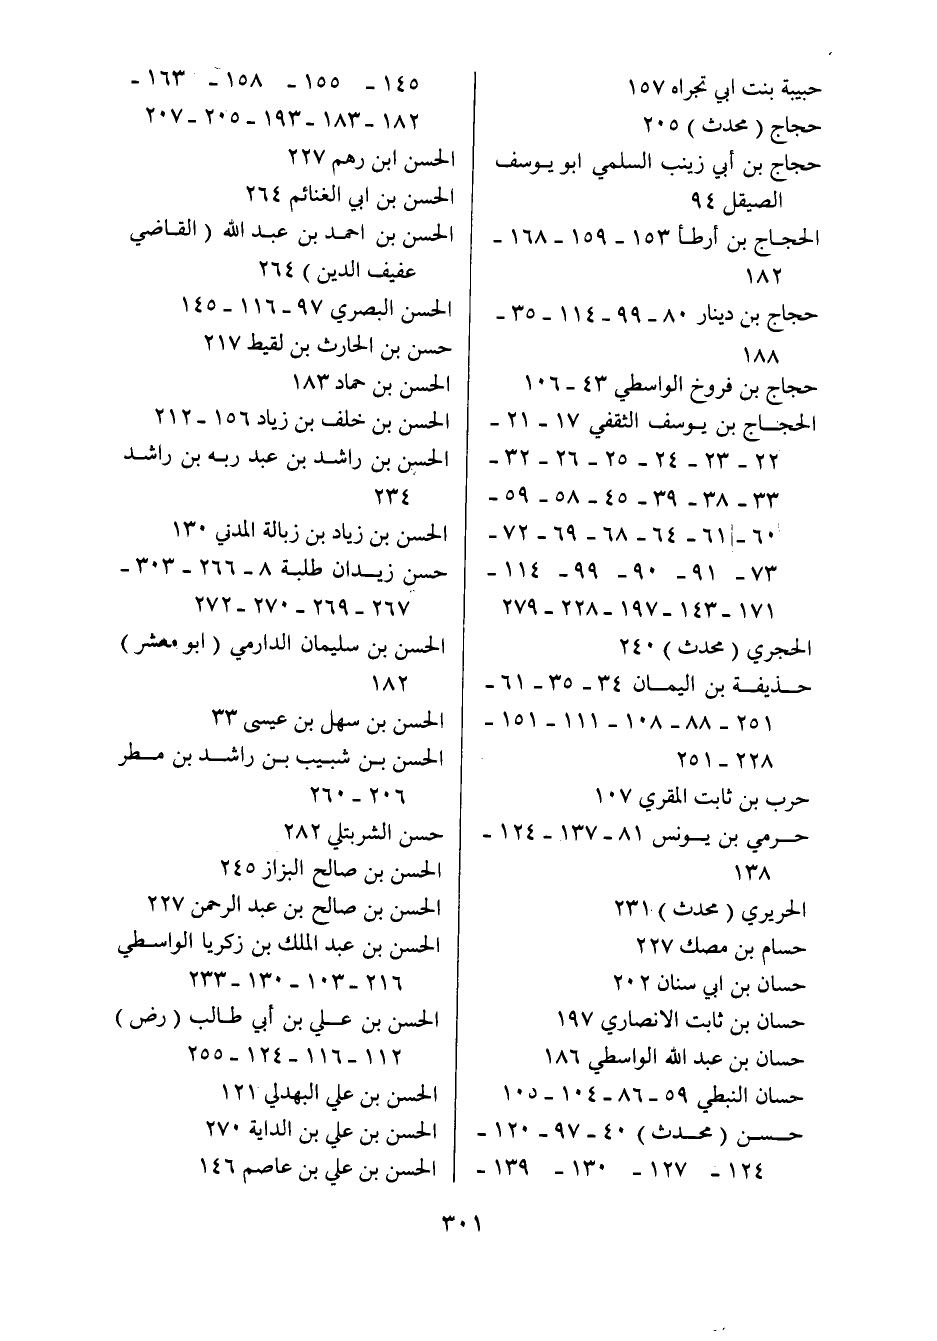 حبيبة بنت ابي تجراه ١٥٧
حجاج ( محدث ) ٢٠٥
حجاج بن أبي زينب السلمي ابو يوسف
الصيقل ٩٤
الحجاج بن أرطأ ١٥٣ - ١٥٩ - ١٦٨ -
١٨٢
حجاج بن دينار ٨٠ - ٩٩ - ١١٤ - ٣٥ -
١٨٨
حجاج بن فروخ الواسطي ٤٣ - ١٠٦
الحجاج بن يوسف الثقفي ١٧ - ٢١ -
٢٢ - ٢٣ - ٢٤ - ٢٥ - ٢٦ - ٣٢ -
٣٣ - ٣٨ - ٣٩ - ٤٥ - ٥٨ - ٥٩ -
٦٠ - ٦١ - ٦٤ - ٦٨ - ٦٩ - ٧٢ -
٧٣ - ٩١ - ٩٠ - ٩٩ - ١١٤ -
١٧١ - ١٤٣ - ١٩٧ - ٢٢٨ - ٢٧٩
الحجري ( محدث ) ٢٤٠
حذيفة بن اليمان ٣٤ - ٣٥ - ٦١ -
٢٥١ - ٨٨ - ١٠٨ - ١١١ - ١٥١ -
٢٢٨ - ٢٥١
حرب بن ثابت المقري ١٠٧
حرمي بن يونس ٨١ - ١٣٧ - ١٢٤ -
١٣٨
الحريري ( محدث ) ٢٣١
حسام بن مصك ٢٢٧
حسان بن ابي سنان ٢٠٢
حسان بن ثابت الانصاري ١٩٧
حسان بن عبد الله الواسطي ١٨٦
حسان النبطي ٥٩ - ٨٦ - ١٠٤ - ١٠٥
حسن ( محدث ) ٤٠ - ٩٧ - ١٢٠ -
١٢٤ - ١٢٧ - ١٣٠ - ١٣٩ -
١٤٥ - ١٥٥ - ١٥٨ - ١٦٣ -
١٨٢ - ١٨٣ - ١٩٣ - ٢٠٥ - ٢٠٧
الحسن ابن رهم ٢٢٧
الحسن بن ابي الغنائم ٢٦٤
الحسن بن احمد بن عبد الله ( القاضي
عفيف الدين ) ٢٦٤
الحسن البصري ٩٧ - ١١٦ - ١٤٥
حسن بن الحارث بن لقيط ٢١٧
الحسن بن حماد ١٨٣
الحسن بن خلف بن زياد ١٥٦ - ٢١٢
الحسن بن راشد بن عبد ربه بن راشد
٢٣٤
الحسن بن زياد بن زبالة المدني ١٣٠
حسن زيدان طلبة ٨ - ٢٦٦ - ٣٠٣ -
٢٦٧ - ٢٦٩ - ٢٧٠ - ٢٧٢
الحسن بن سليمان الدارمي ( ابو معشر )
١٨٢
الحسن بن سهل بن عيسى ٣٣
الحسن بن شبيب بن راشد بن مطر
٢٠٦ - ٢٦٠
حسن الشربتلي ٢٨٢
الحسن بن صالح البزاز ٢٤٥
الحسن بن صالح بن عبد الرحمن ٢٢٧
الحسن بن عبد الملك بن زكريا الواسطي
٢١٦ - ١٠٣ - ١٣٠ - ٢٣٣
الحسن بن علي بن أبي طالب ( رض )
١١٢ - ١١٦ - ١٢٤ - ٢٥٥
الحسن بن علي البهدلي ١٢١
الحسن بن علي بن الداية ٢٧٠
الحسن بن علي بن عاصم ١٤٦
٣٠١